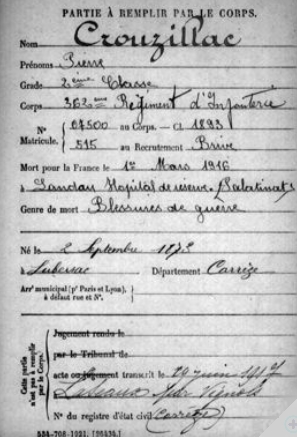 PARTIE À REMPLIR PAR LE CORPS.
Nom Crouzillac
Prénoms Pierre
Grade 2ème Classe
Corps 362ème Régiment d'Infanterie
N° Matricule. { 07500 au Corps. — Cl. 1893
515 au Recrutement Brive
Mort pour la France le 1er Mars 1916
à Landau Hopital de réserve. (Palatinat)
Genre de mort Blessures de guerre
Né le 2 Septembre 1873
à Lubersac Département Corrèze
Arrt municipal (pr Paris et Lyon), à défaut rue et N°.
Cette partie n'est pas à remplir par le Corps.
Jugement rendu le
par le Tribunal de
acte ou jugement transcrit le 29 juin 1917
par Vignols
N° du registre d'état civil (Corrèze)
534-708-1921. [26434.]